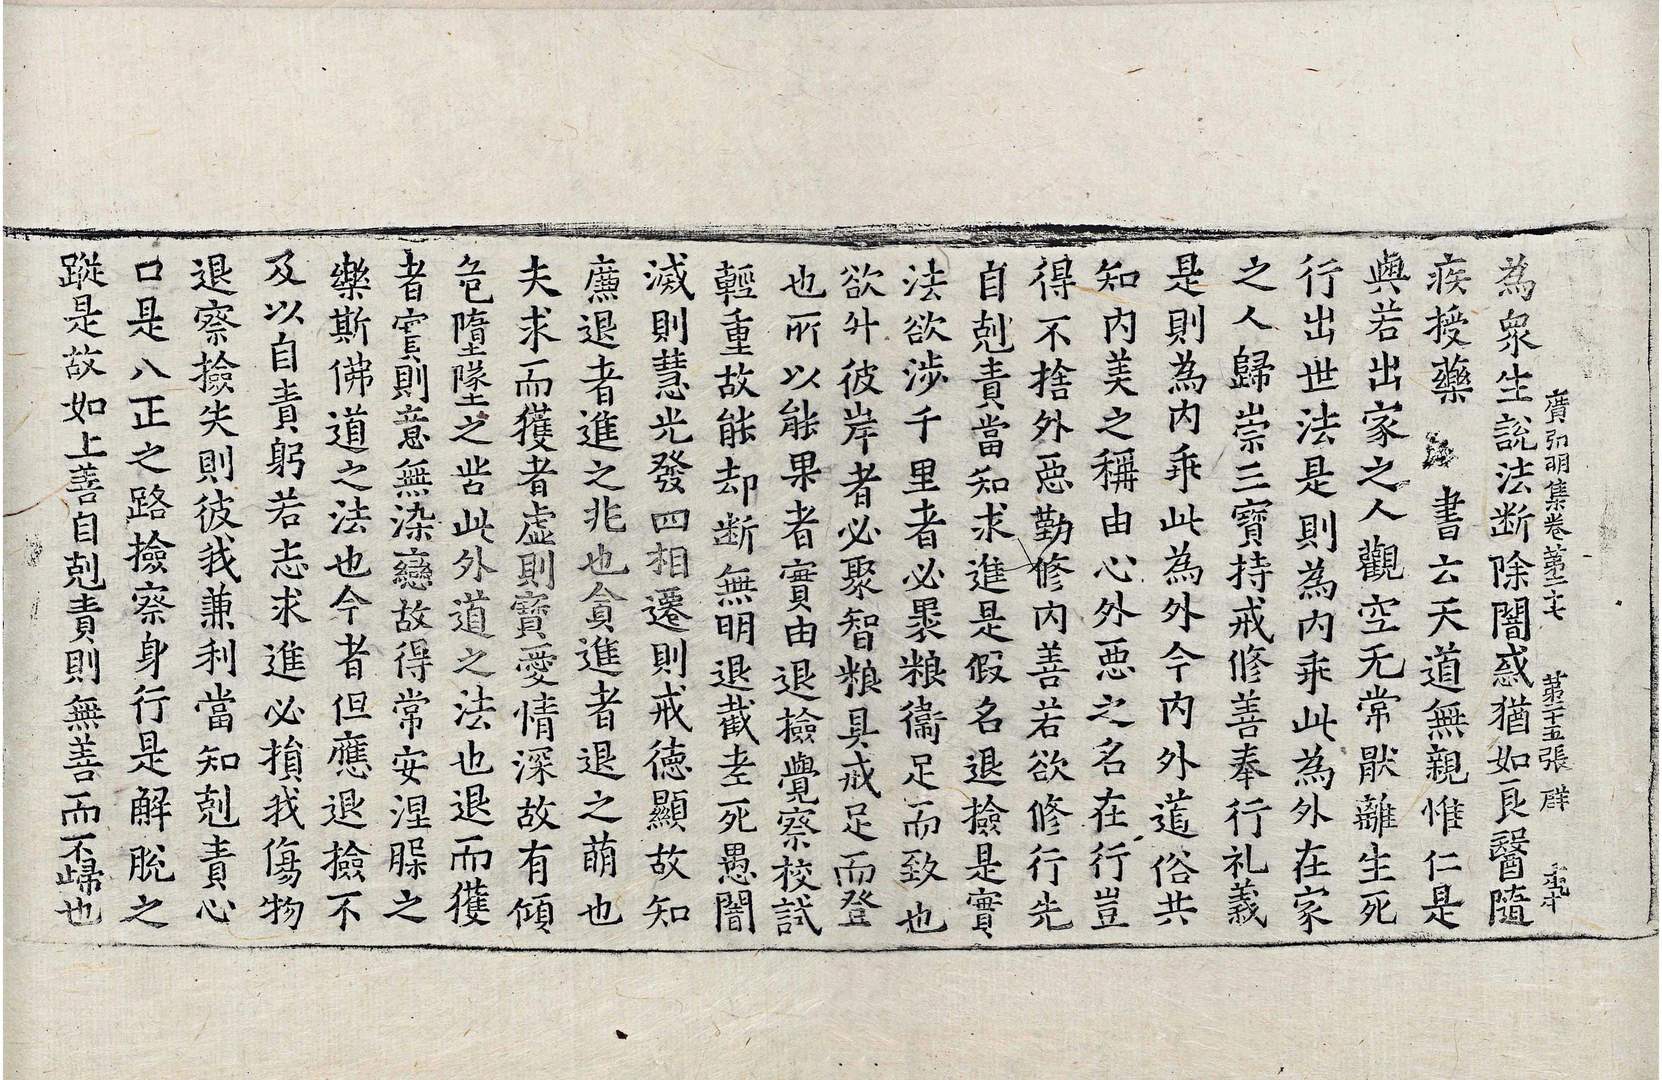 為衆生說法断除闇惑猶如良醫隨
廣弘明集卷第二十七 第二十五張 群
疾授藥 書云天道無親惟仁是
與若出家之人觀空无常猒離生死
行出世法是則為内乖此為外在家
之人歸崇三寶持戒修善奉行礼義
是則為内乖此為外今内外道俗共
知内美之稱由心外惡之名在行豈
得不捨外惡勤修内善若欲修行先
自剋責當知求進是假名退撿是實
法欲涉千里者必褁粮衞足而致也
欲外彼岸者必聚智粮具戒足而登
也所以能果者實由退撿覺察校試
輕重故能却断無明退截老死愚闇
滅則慧光發四相遷則戒德顯故知
廉退者進之兆也貪進者退之萌也
夫求而獲者虛則寶愛情深故有傾
危墮墜之苦此外道之法也退而獲
者實則意無染戀故得常安涅槃之
樂斯佛道之法也今者但應退撿不
及以自責躬若志求進必損我傷物
退察撿失則彼我兼利當知剋責心
口是八正之路撿察身行是解脫之
蹤是故如上善自剋責則無善而不歸也